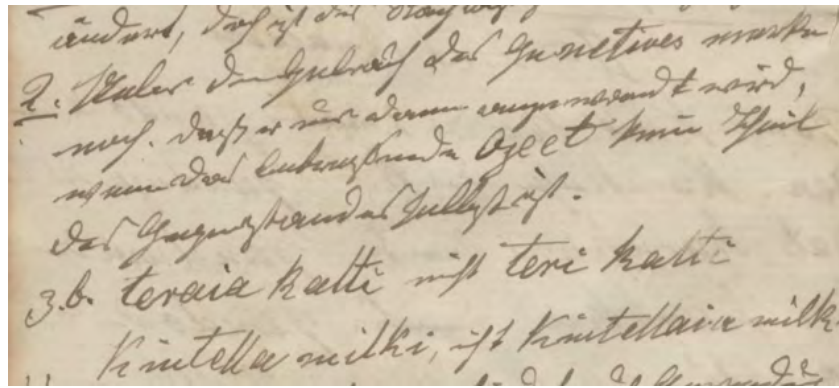 ändert, doch ist das
2. Ueber den Gebrauch des Genetives merke
noch, daß er nur dann angewandt wird,
wenn das betreffende Ojeet kein Theil
des Gegenstandes selbst ist.
z.b. teraia katti nicht teri katti
Kintella milki, nicht Kintellaia milk